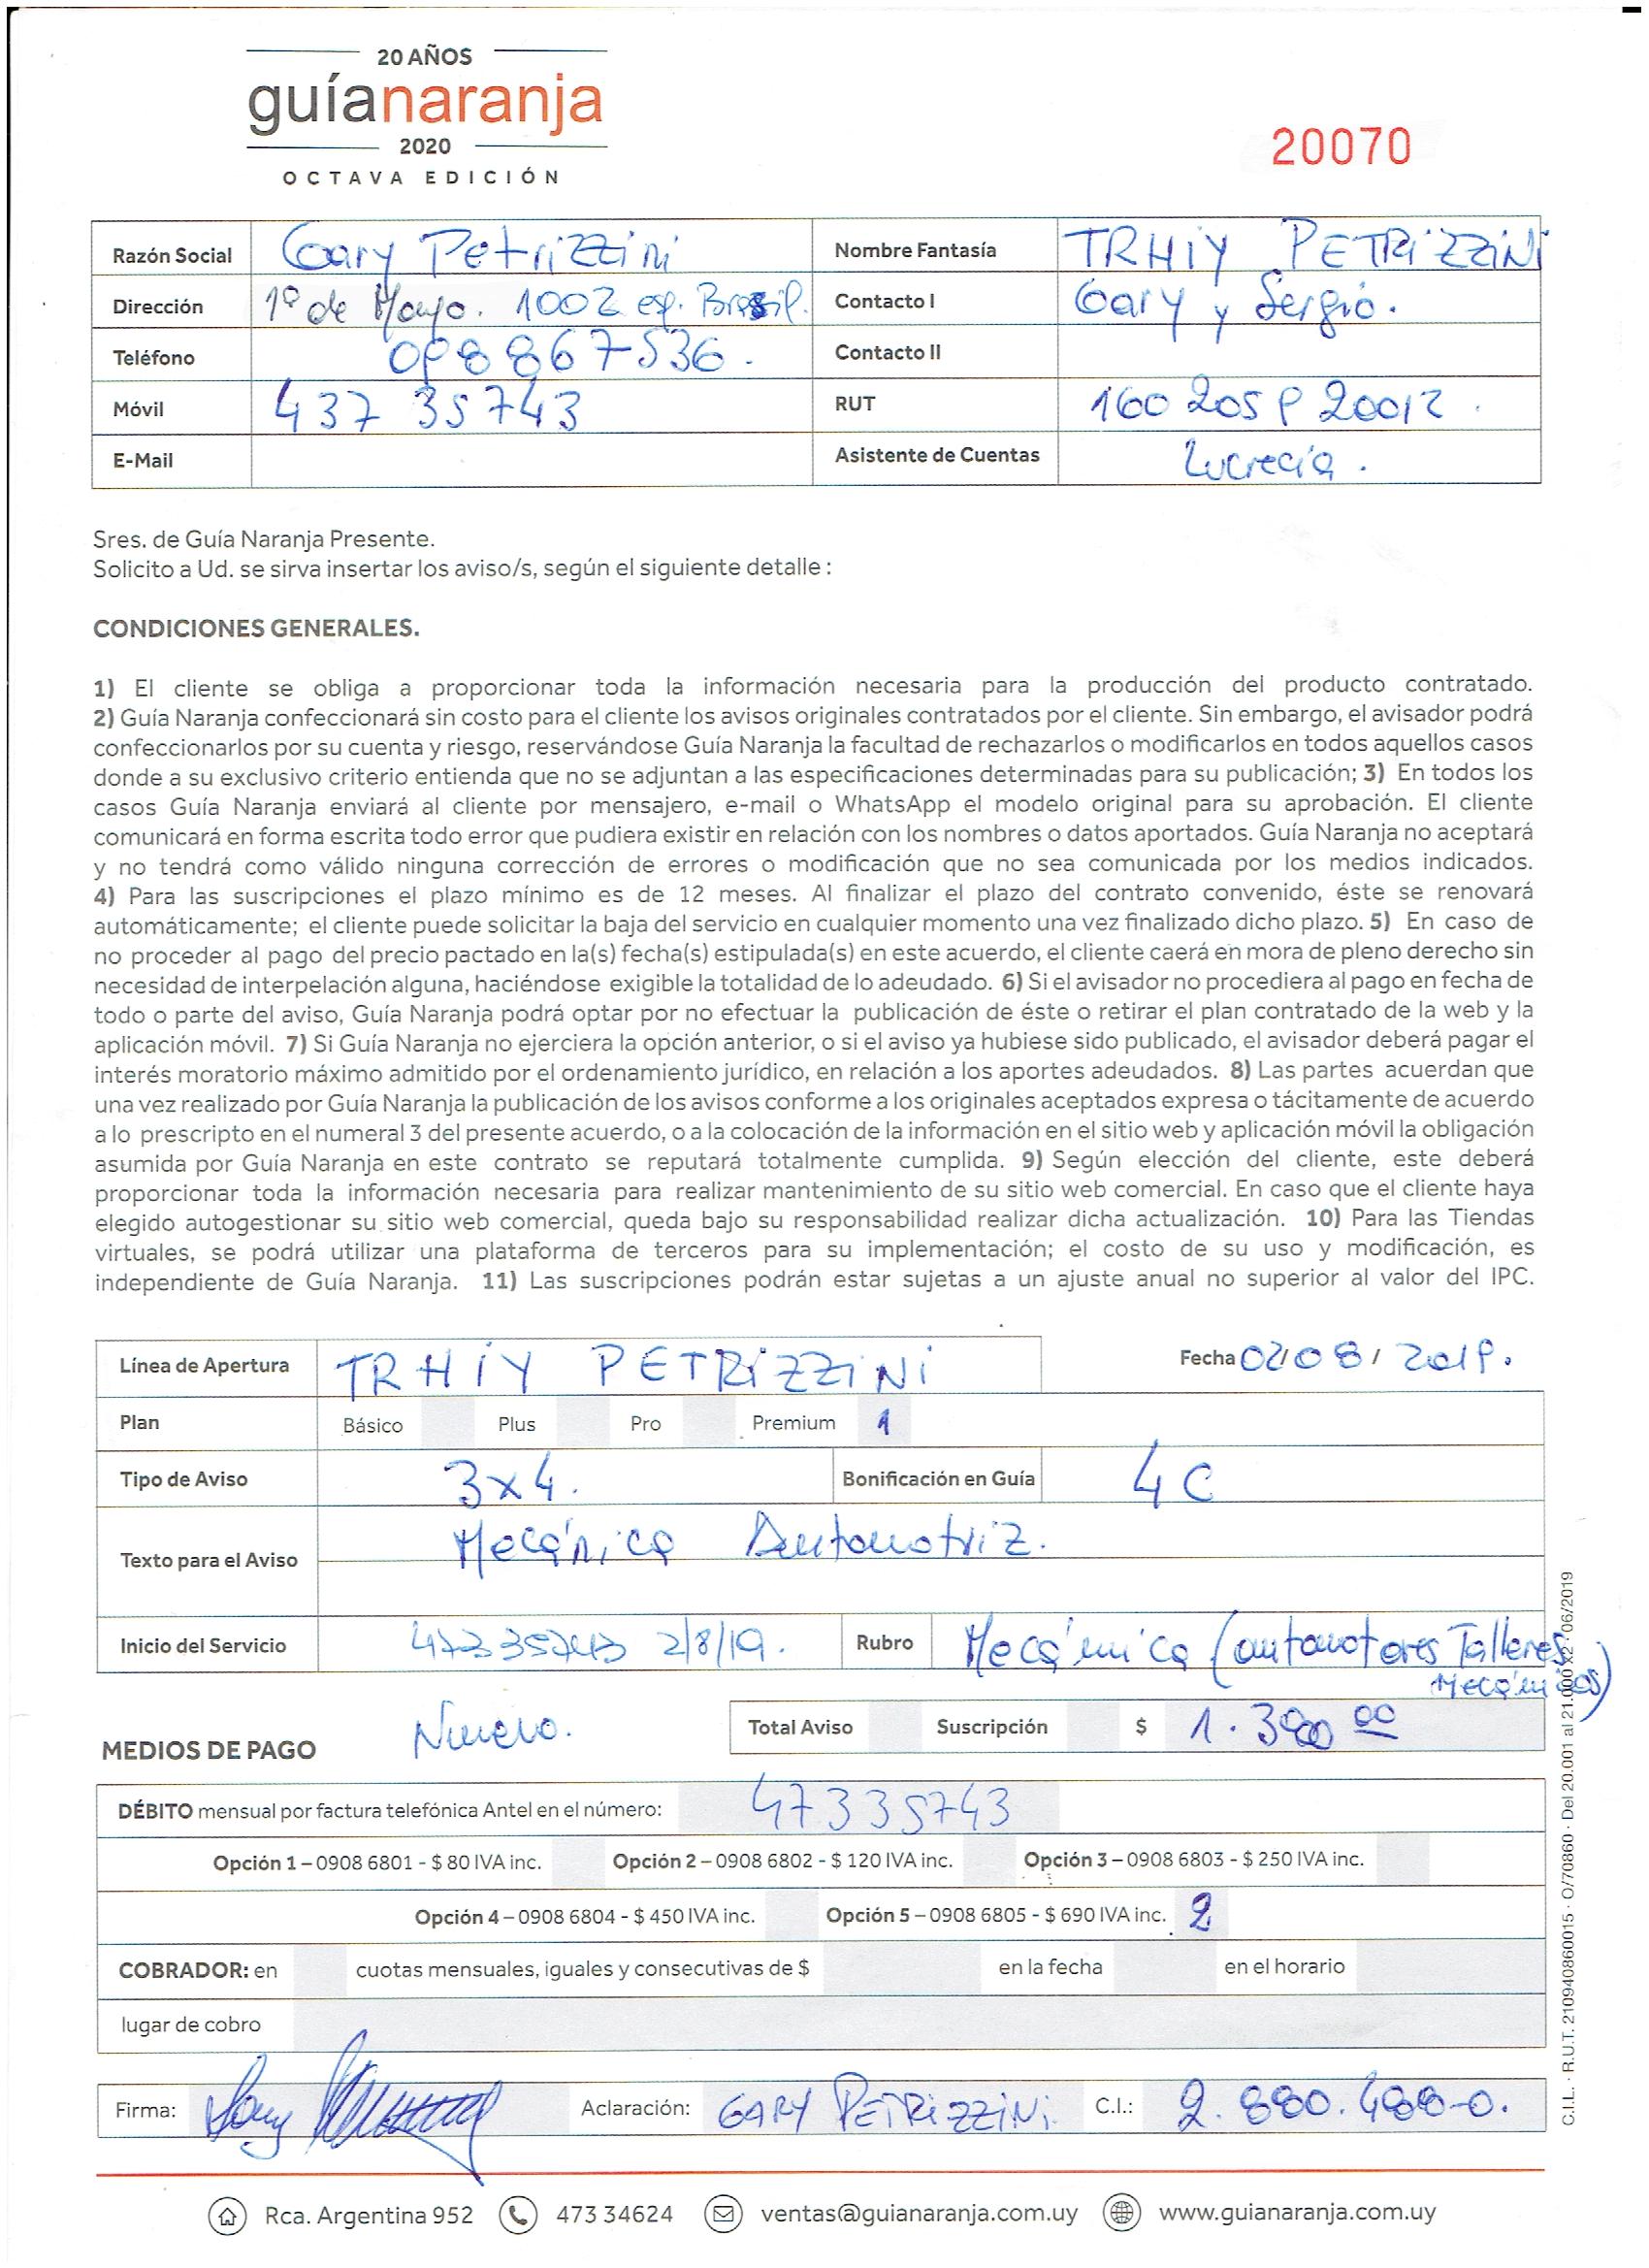 20 AÑOS
guíanaranja
2020
OCTAVA EDICIÓN
20070
Razón Social Gary Petrizzini Nombre Fantasía TRHIY PETRIZZINI
Dirección 1º de Mayo. 1002 esq. Brasil. Contacto I Gary y Sergio.
Teléfono 098 867536. Contacto II
Móvil 437 35743 RUT 160 205 9 20012.
E-Mail Asistente de Cuentas Lucrecia.
Sres. de Guía Naranja Presente.
Solicito a Ud. se sirva insertar los aviso/s, según el siguiente detalle :
CONDICIONES GENERALES.
1) El cliente se obliga a proporcionar toda la información necesaria para la producción del producto contratado.
2) Guía Naranja confeccionará sin costo para el cliente los avisos originales contratados por el cliente. Sin embargo, el avisador podrá
confeccionarlos por su cuenta y riesgo, reservándose Guía Naranja la facultad de rechazarlos o modificarlos en todos aquellos casos
donde a su exclusivo criterio entienda que no se adjuntan a las especificaciones determinadas para su publicación; 3) En todos los
casos Guía Naranja enviará al cliente por mensajero, e-mail o WhatsApp el modelo original para su aprobación. El cliente
comunicará en forma escrita todo error que pudiera existir en relación con los nombres o datos aportados. Guía Naranja no aceptará
y no tendrá como válido ninguna corrección de errores o modificación que no sea comunicada por los medios indicados.
4) Para las suscripciones el plazo mínimo es de 12 meses. Al finalizar el plazo del contrato convenido, éste se renovará
automáticamente; el cliente puede solicitar la baja del servicio en cualquier momento una vez finalizado dicho plazo. 5) En caso de
no proceder al pago del precio pactado en la(s) fecha(s) estipulada(s) en este acuerdo, el cliente caerá en mora de pleno derecho sin
necesidad de interpelación alguna, haciéndose exigible la totalidad de lo adeudado. 6) Si el avisador no procediera al pago en fecha de
todo o parte del aviso, Guía Naranja podrá optar por no efectuar la publicación de éste o retirar el plan contratado de la web y la
aplicación móvil. 7) Si Guía Naranja no ejerciera la opción anterior, o si el aviso ya hubiese sido publicado, el avisador deberá pagar el
interés moratorio máximo admitido por el ordenamiento jurídico, en relación a los aportes adeudados. 8) Las partes acuerdan que
una vez realizado por Guía Naranja la publicación de los avisos conforme a los originales aceptados expresa o tácitamente de acuerdo
a lo prescripto en el numeral 3 del presente acuerdo, o a la colocación de la información en el sitio web y aplicación móvil la obligación
asumida por Guía Naranja en este contrato se reputará totalmente cumplida. 9) Según elección del cliente, este deberá
proporcionar toda la información necesaria para realizar mantenimiento de su sitio web comercial. En caso que el cliente haya
elegido autogestionar su sitio web comercial, queda bajo su responsabilidad realizar dicha actualización. 10) Para las Tiendas
virtuales, se podrá utilizar una plataforma de terceros para su implementación; el costo de su uso y modificación, es
independiente de Guía Naranja. 11) Las suscripciones podrán estar sujetas a un ajuste anual no superior al valor del IPC.
Línea de Apertura TRHIY PETRIZZINI Fecha 02/08/2019.
Plan Básico Plus Pro Premium 1
Tipo de Aviso 3x4. Bonificación en Guía 4C
Texto para el Aviso Mecánica Automotriz.
Inicio del Servicio 47335743 2/8/19. Rubro Mecánica (automotores Talleres
Mecánicos)
Nuevo. Total Aviso Suscripción $
MEDIOS DE PAGO
DÉBITO mensual por factura telefónica Antel en el número: 47335743
Opción 1 – 0908 6801 - $ 80 IVA inc. Opción 2 – 0908 6802 - $ 120 IVA inc. Opción 3 – 0908 6803 - $ 250 IVA inc.
Opción 4 – 0908 6804 - $ 450 IVA inc. Opción 5 – 0908 6805 - $ 690 IVA inc. 2
COBRADOR: en cuotas mensuales, iguales y consecutivas de $ en la fecha en el horario
lugar de cobro
Firma: Gary Aclaración: GARY PETRIZZINI C.I.: 2.880.488-0.
Rca. Argentina 952 473 34624 ventas@guianaranja.com.uy www.guianaranja.com.uy
C.I.L. · R.U.T. 210940860015 · O/70860 · Del 20.001 al 21.000 x2 · 06/2019